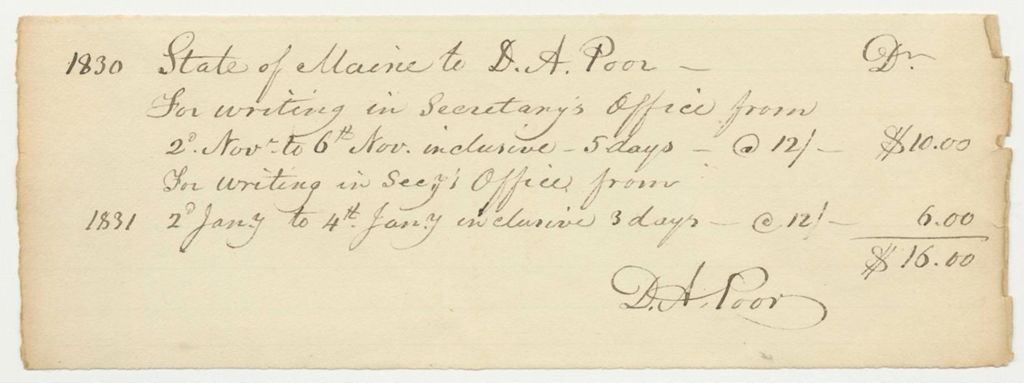 1830 State of Maine to D. A. Poor — Dr
For writing in Secretary's Office from
2d. Novr. to 6th Nov. inclusive – 5 days – @ 12/– $10.00
For writing in Secy's Office from
1831 2d Jany to 4th. Jany inclusive 3 days – @ 12/– 6.00
$16.00
D. A. Poor